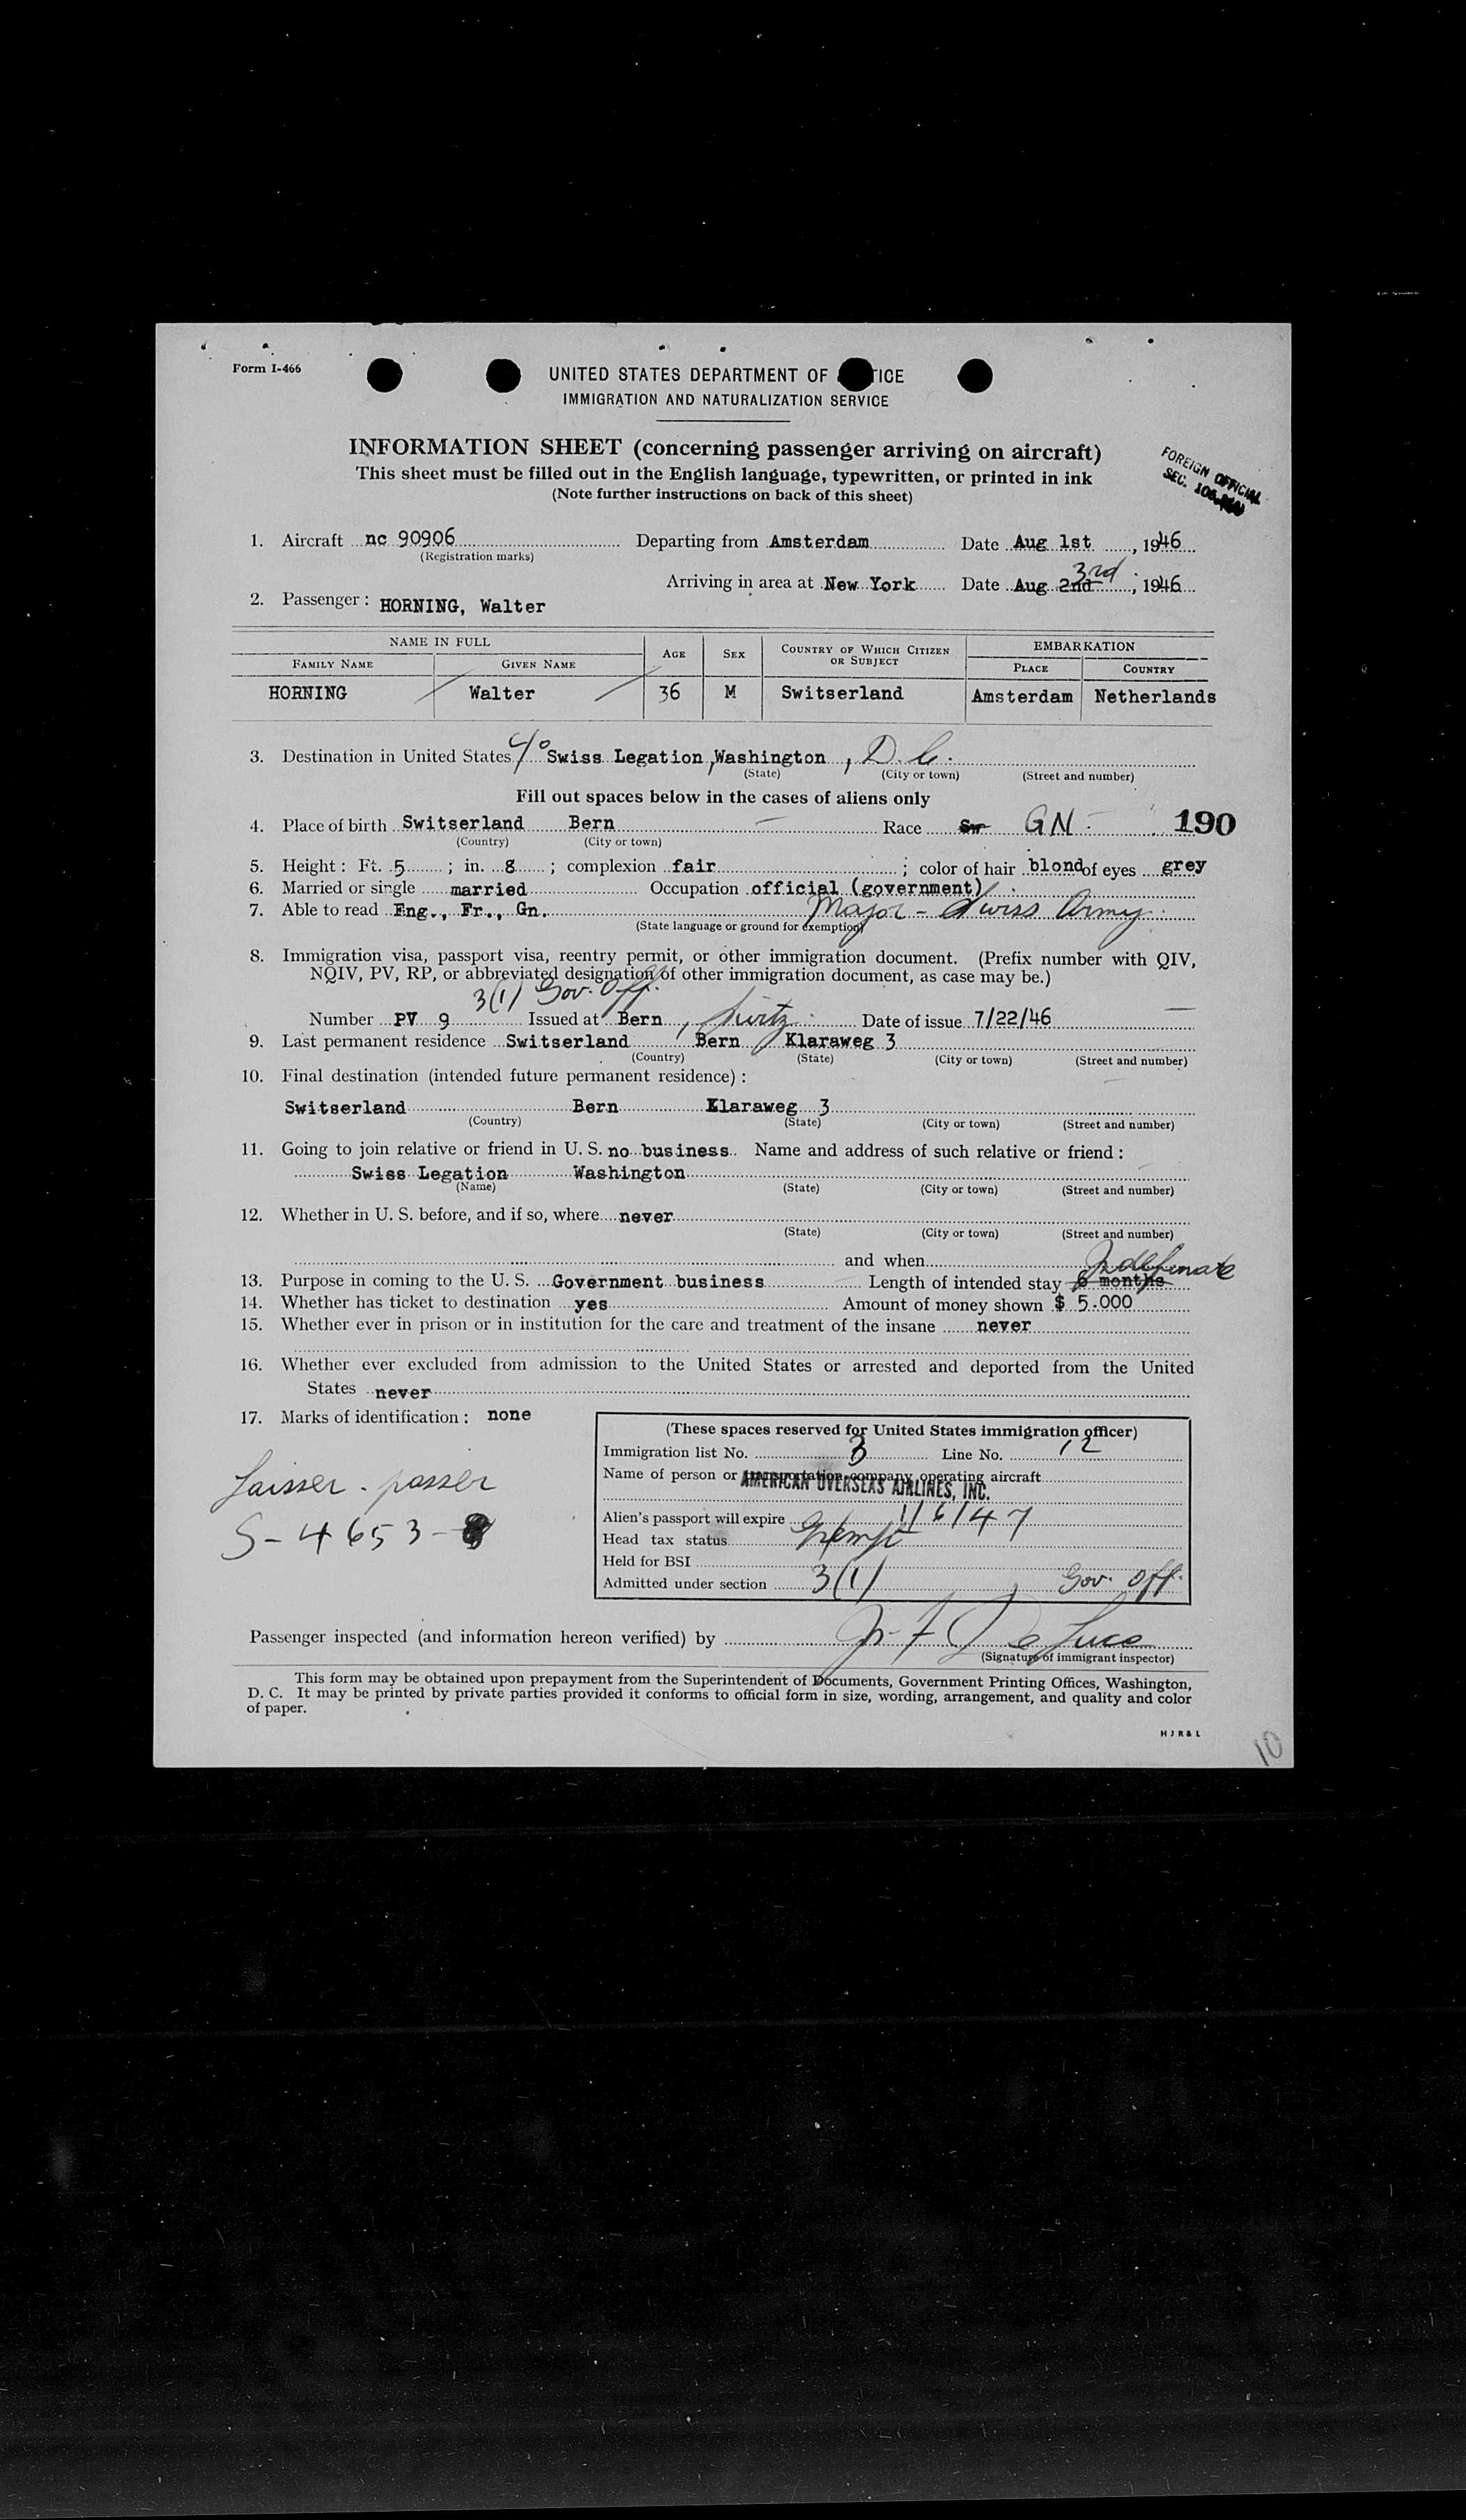 Form I-466
UNITED STATES DEPARTMENT OF TICE
IMMIGRATION AND NATURALIZATION SERVICE
INFORMATION SHEET (concerning passenger arriving on aircraft)
This sheet must be filled out in the English language, typewritten, or printed in ink
(Note further instructions on back of this sheet)
FOREIGN OFFICIAL
SEC.
1. Aircraft nc 90906 Departing from Amsterdam Date Aug 1st, 1946
(Registration marks)
3rd
Arriving in area at New York Date Aug 2nd, 1946
2. Passenger: HORNING, Walter
NAME IN FULL AGE SEX COUNTRY OF WHICH CITIZEN OR SUBJECT EMBARKATION
FAMILY NAME GIVEN NAME PLACE COUNTRY
HORNING Walter 36 M Switserland Amsterdam Netherlands
3. Destination in United States c/o Swiss Legation, Washington, D.C.
(State) (City or town) (Street and number)
Fill out spaces below in the cases of aliens only
4. Place of birth Switserland Bern Race Sw GN 190
(Country) (City or town)
5. Height: Ft. 5; in. 8; complexion fair; color of hair blond of eyes grey
6. Married or single married Occupation official (government)
7. Able to read Eng., Fr., Gn. Major - Swiss Army
(State language or ground for exemption)
8. Immigration visa, passport visa, reentry permit, or other immigration document. (Prefix number with QIV,
NQIV, PV, RP, or abbreviated designation of other immigration document, as case may be.)
3(1) Gov. Off.
Number PV 9 Issued at Bern, Switz. Date of issue 7/22/46
9. Last permanent residence Switserland Bern Klaraweg 3
(Country) (State) (City or town) (Street and number)
10. Final destination (intended future permanent residence):
Switserland Bern Klaraweg 3
(Country) (State) (City or town) (Street and number)
11. Going to join relative or friend in U. S. no business Name and address of such relative or friend:
Swiss Legation Washington
(Name) (State) (City or town) (Street and number)
12. Whether in U. S. before, and if so, where never
(State) (City or town) (Street and number)
and when
Indefinate
13. Purpose in coming to the U. S. Government business Length of intended stay 6 months
14. Whether has ticket to destination yes Amount of money shown $ 5.000
15. Whether ever in prison or in institution for the care and treatment of the insane never
16. Whether ever excluded from admission to the United States or arrested and deported from the United
States never
17. Marks of identification: none
(These spaces reserved for United States immigration officer)
Immigration list No. 3 Line No. 12
Name of person or transportation company operating aircraft
AMERICAN OVERSEAS AIRLINES, INC.
Alien's passport will expire 1/6/47
Head tax status Exempt
Held for BSI
Admitted under section 3(1) Gov. Off.
Laisser-passer
S-4653-
Passenger inspected (and information hereon verified) by De Luca
(Signature of immigrant inspector)
This form may be obtained upon prepayment from the Superintendent of Documents, Government Printing Offices, Washington,
D. C. It may be printed by private parties provided it conforms to official form in size, wording, arrangement, and quality and color
of paper.
HJR&L
10